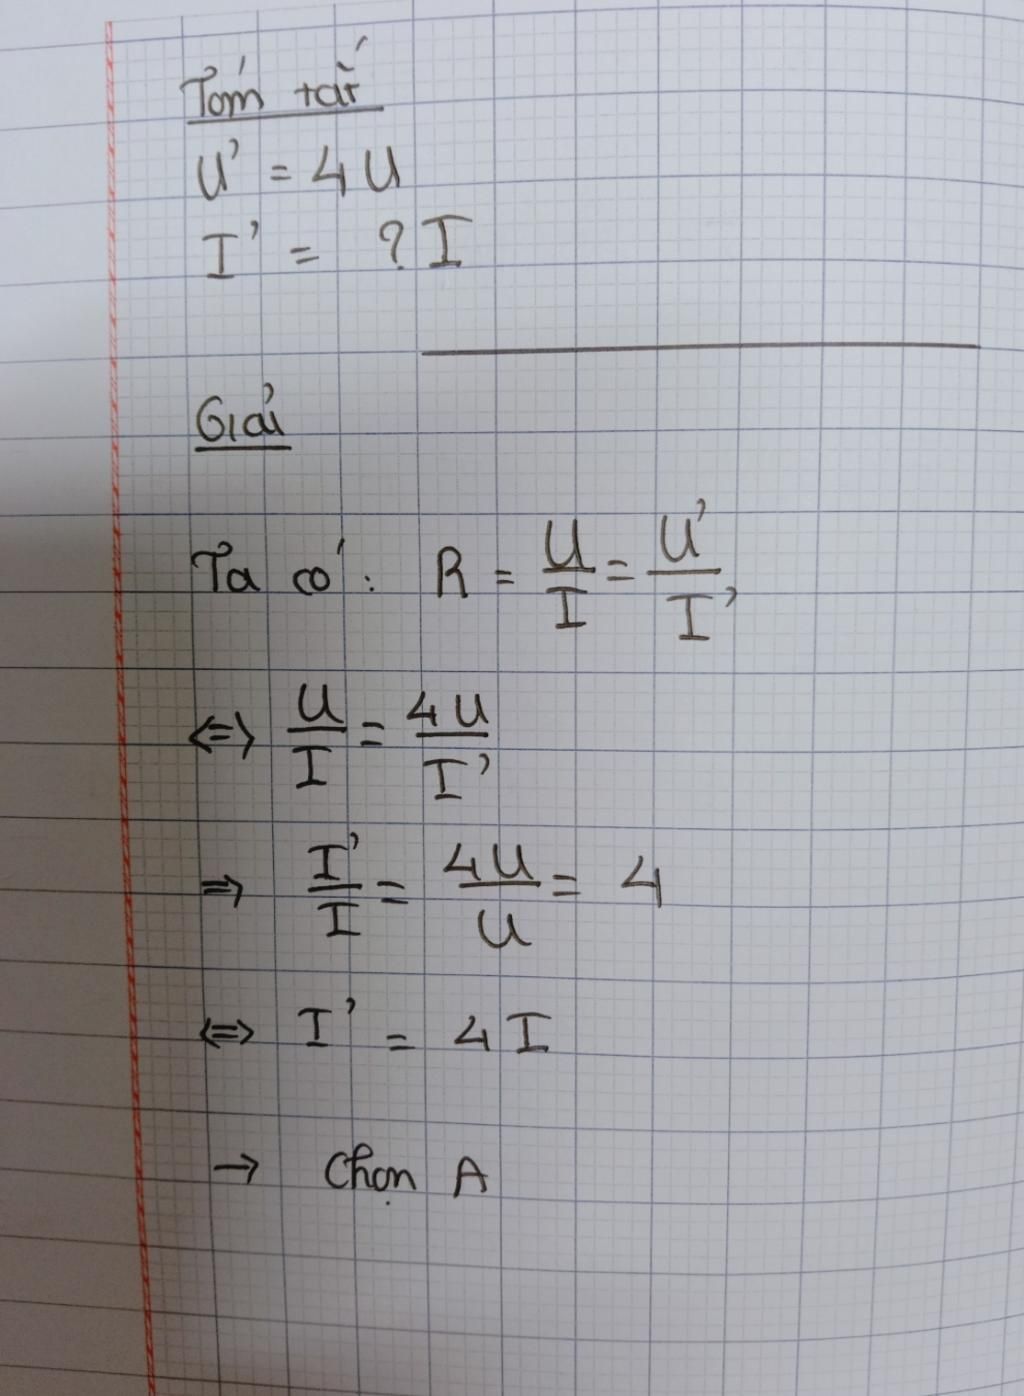 Tóm tắt
U' = 4U
I' = ? I
Giải
Ta có: R = U/I = U'/I'
<=> U/I = 4U/I'
=> I'/I = 4U/U = 4
<=> I' = 4I
→ Chọn A